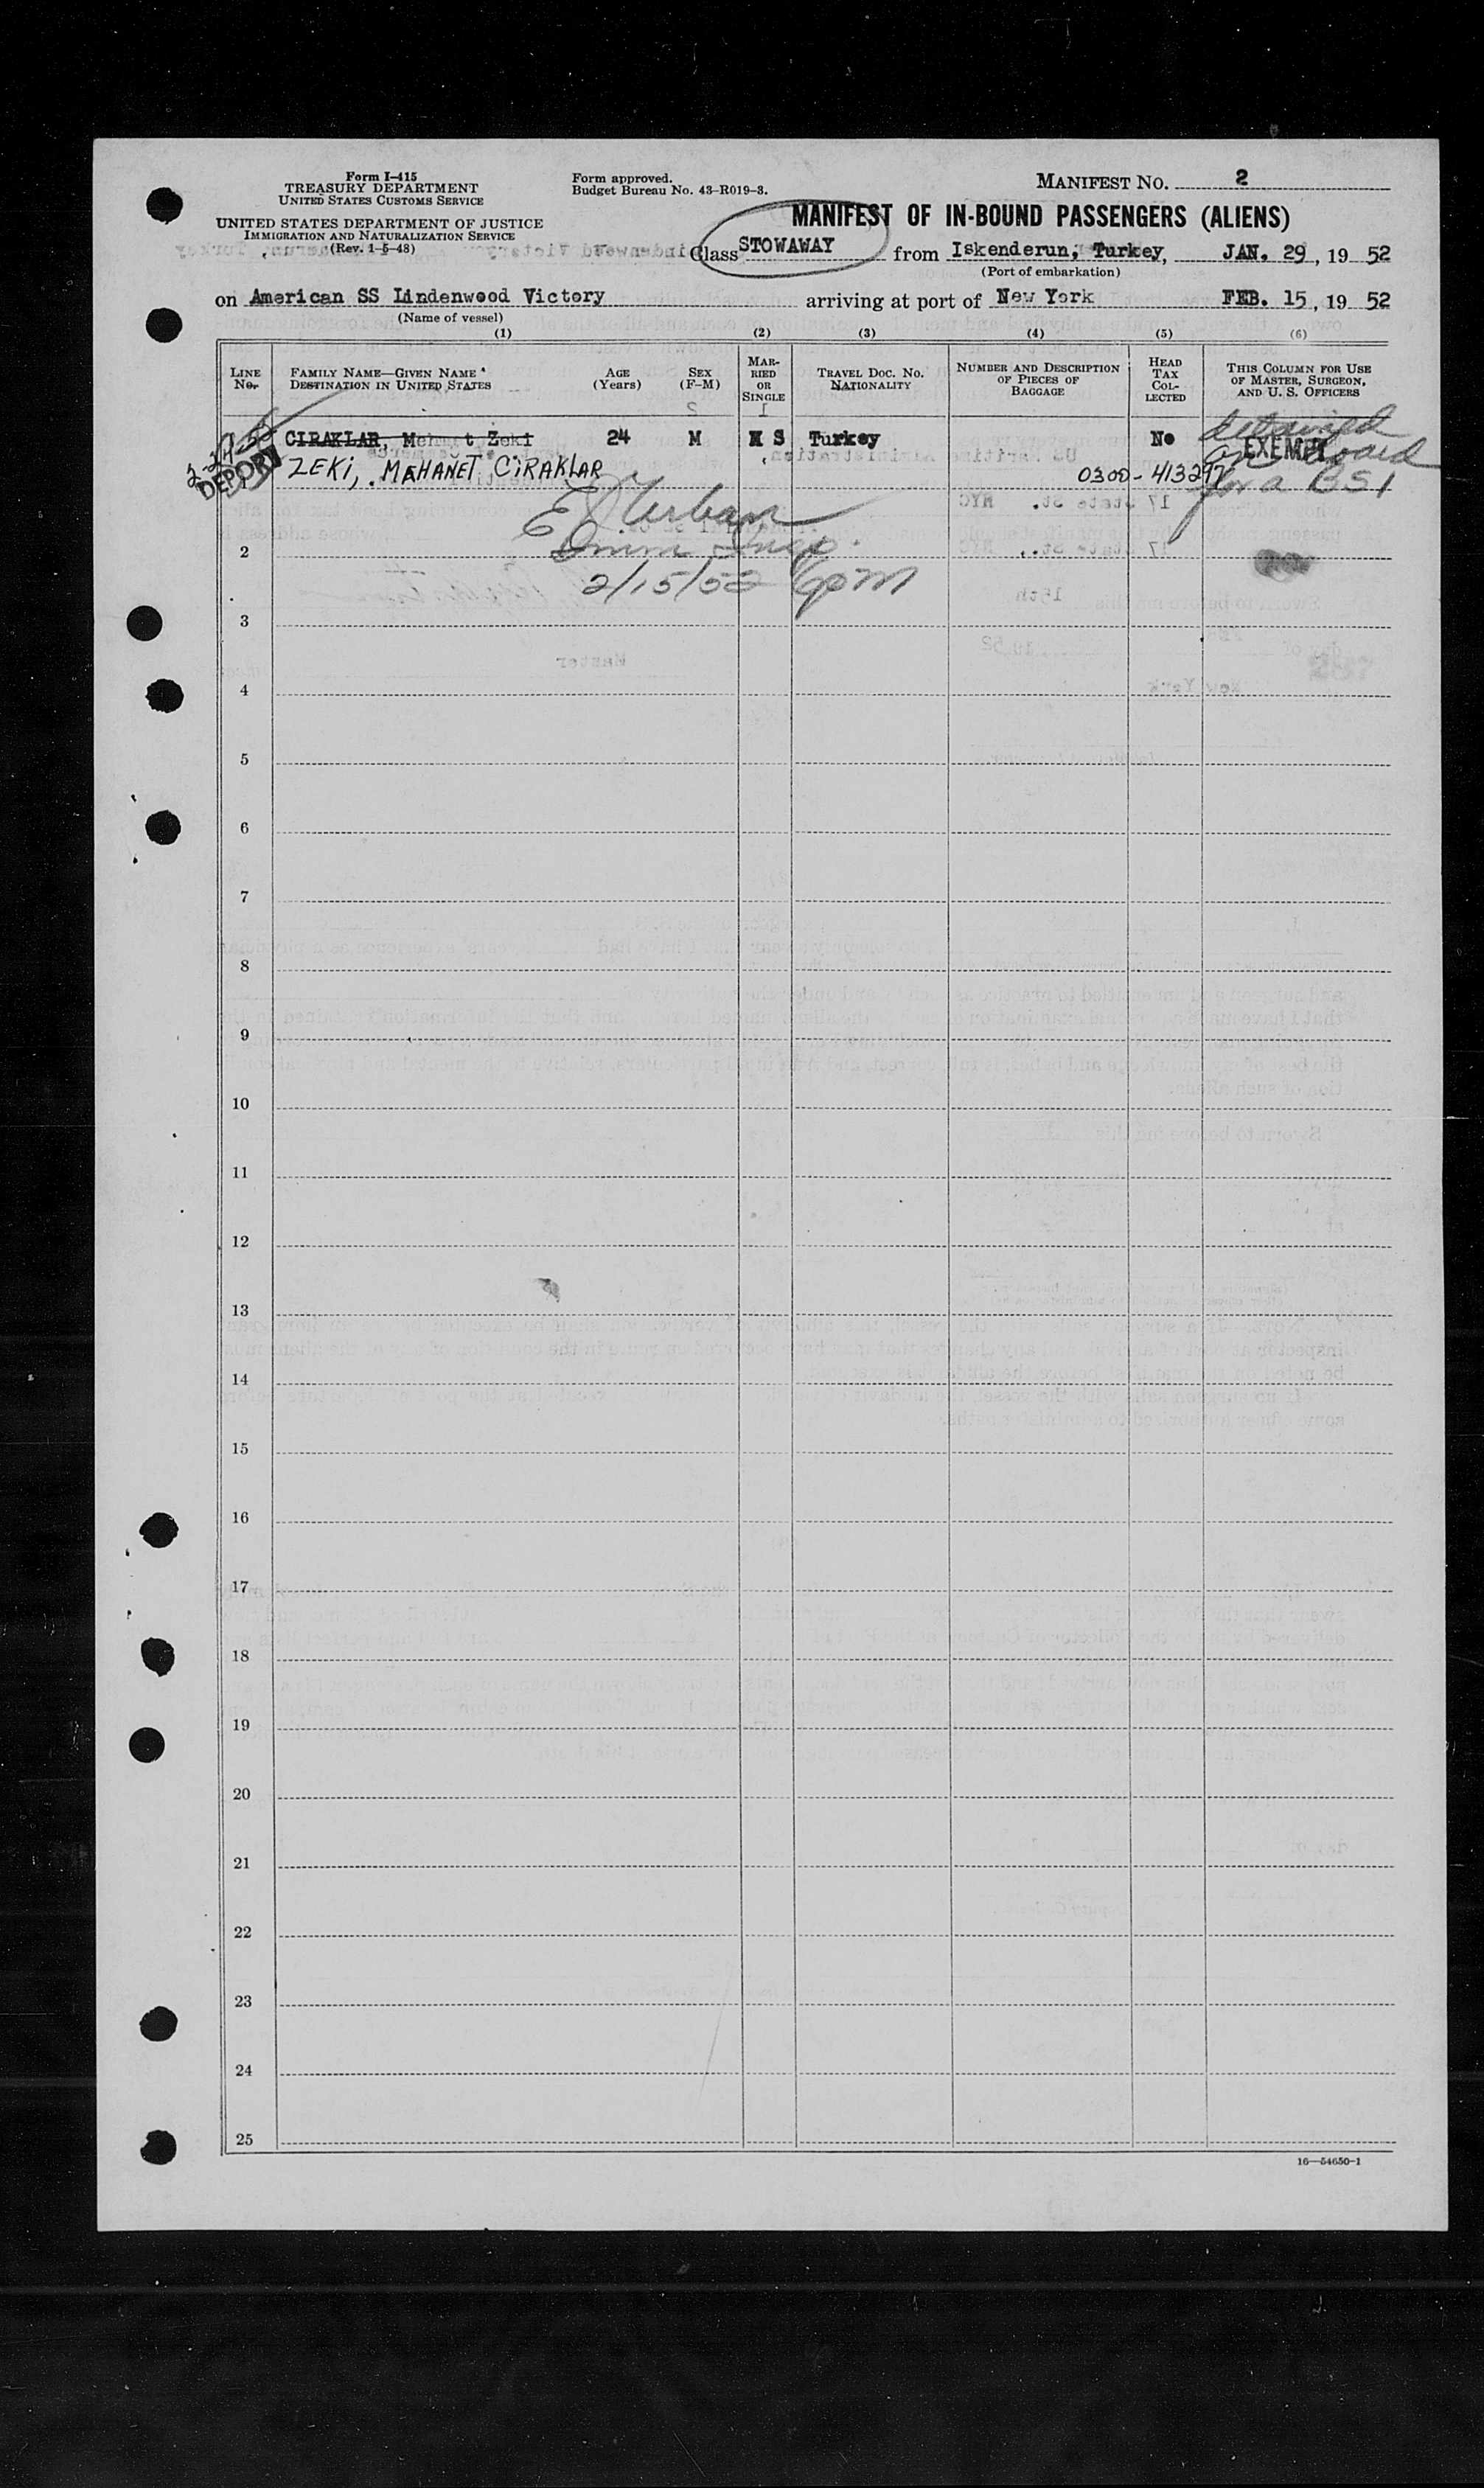 Form I-415
TREASURY DEPARTMENT
UNITED STATES CUSTOMS SERVICE
UNITED STATES DEPARTMENT OF JUSTICE
IMMIGRATION AND NATURALIZATION SERVICE
(Rev. 1-5-48)
Form approved.
Budget Bureau No. 43-R019-3.
MANIFEST NO. 2
MANIFEST OF IN-BOUND PASSENGERS (ALIENS)
Class STOWAWAY from Iskenderun, Turkey, JAN. 29, 19 52
(Port of embarkation)
on American SS Lindenwood Victory arriving at port of New York FEB. 15, 19 52
(Name of vessel)
(1) (2) (3) (4) (5) (6)
LINE No. FAMILY NAME—GIVEN NAME DESTINATION IN UNITED STATES AGE (Years) SEX (F-M) MARRIED OR SINGLE TRAVEL DOC. No. NATIONALITY NUMBER AND DESCRIPTION OF PIECES OF BAGGAGE HEAD TAX COLLECTED THIS COLUMN FOR USE OF MASTER, SURGEON, AND U. S. OFFICERS
CIRAKLAR, Mehmet Zeki 24 M M S Turkey No EXEMPT
detained
on board
for a BSI
DEPORT
ZEKI, MAHANET CIRAKLAR 0300-413297
Urban
Imm Insp.
2/15/52 6pm
2
3
4
5
6
7
8
9
10
11
12
13
14
15
16
17
18
19
20
21
22
23
24
25
16—54650-1